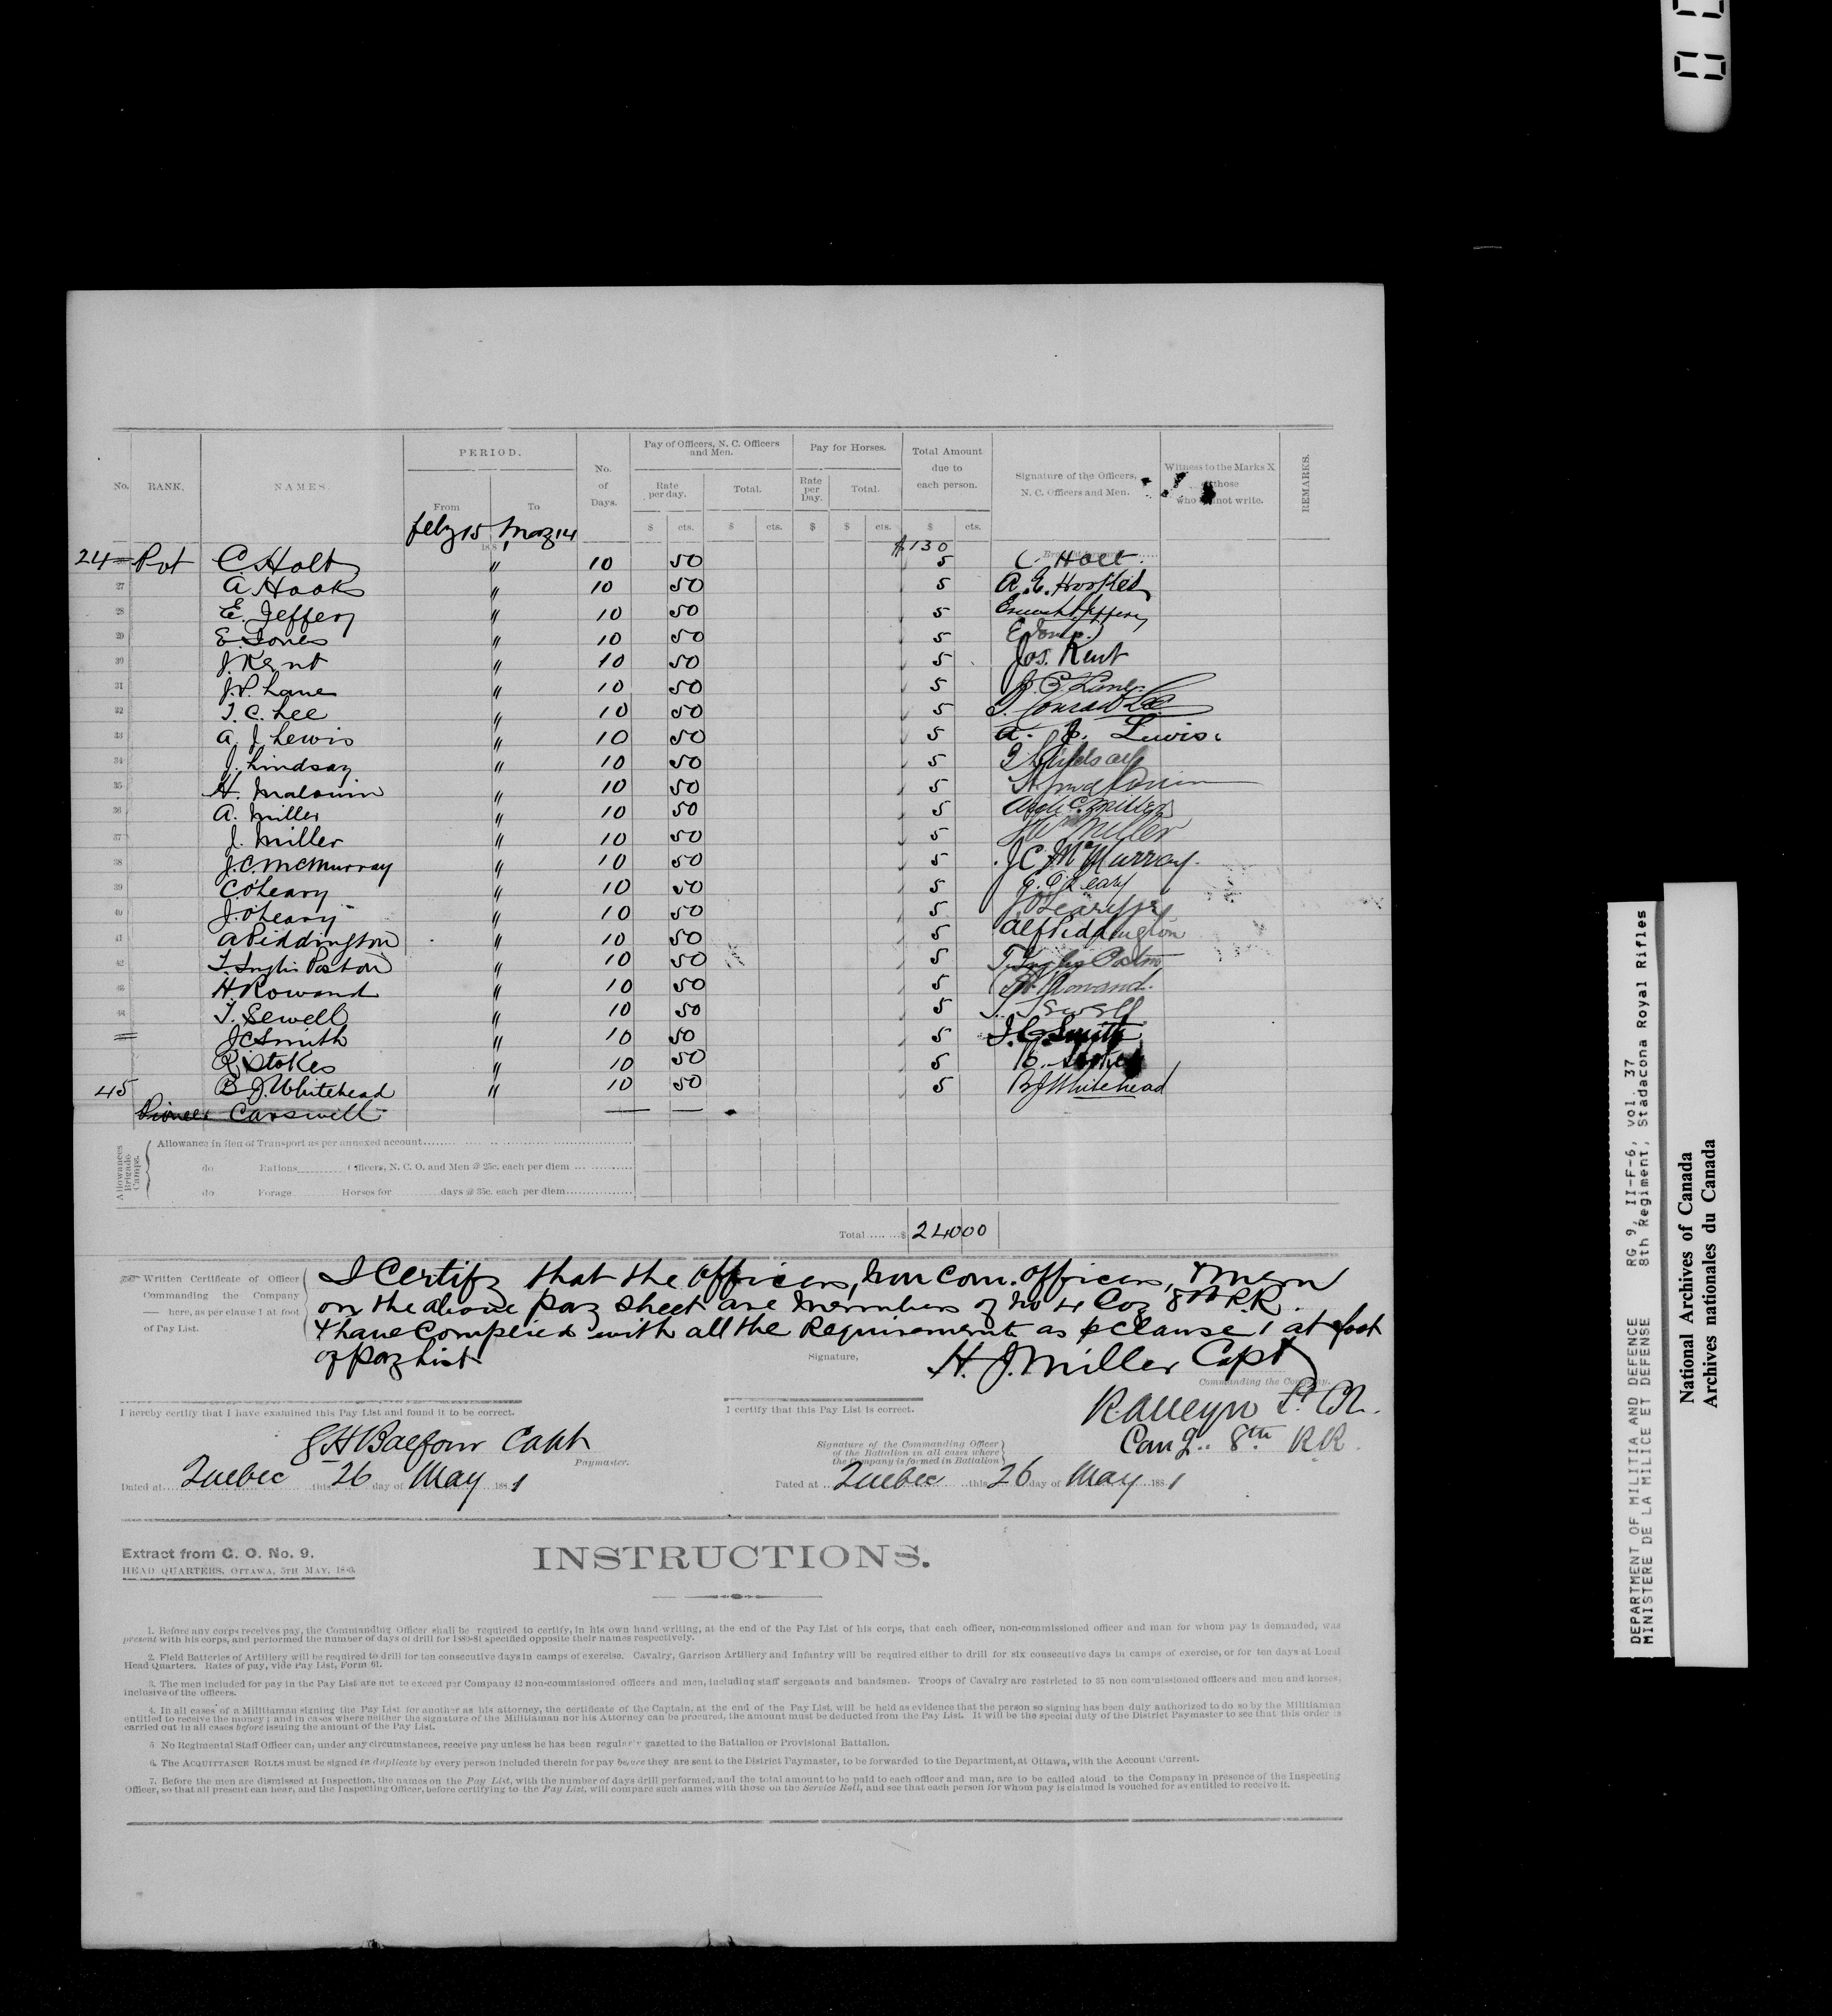 No. RANK. NAMES. PERIOD. No. of Days. Pay of Officers, N. C. Officers and Men. Pay for Horses. Total Amount due to each person. Signature of the Officers, N. C. Officers and Men. Witness to the Marks X those who not write. REMARKS.
From To Rate per day. Total. Rate per Day. Total.
$ cts. $ cts. $ $ cts. $ cts.
Feby 15 May 14
188
$130
24 Pvt C. Holt " 10 50 5 C. Holt
27 A Hook " 10 50 5
28 E. Jeffery " 10 50 5 Jeffery
29 E. Jones " 10 50 5 E Jones
30 J. Kent " 10 50 5 Jos. Kent
31 J.P. Lane " 10 50 5 Lane
32 T. C. Lee " 10 50 5 T. Conrad Lee
33 A. J Lewis " 10 50 5 A. J. Lewis.
34 J. Lindsay " 10 50 5 Lindsay
35 H. Malouin " 10 50 5 H. Malouin
36 A. Miller " 10 50 5 Miller
37 J. Miller " 10 50 5 Miller
38 J.C. McMurray " 10 50 5 J C McMurray
39 C O'Leary " 10 50 5 O'Leary
40 J. O'Leary " 10 50 5 J O'Leary
41 A Piddington " 10 50 5 Alf Piddington
42 T. Inglis Poston " 10 50 5 T. Inglis Poston
43 H Rowand " 10 50 5 Rowand.
44 T. Sewell " 10 50 5 T. Sewell
J C Smith " 10 50 5 J. C. Smith
R. Stokes " 10 50 5 R. Stokes
45 B J. Whitehead " 10 50 5 B J Whitehead
Pioneer Carswell
Allowances Brigade Camps.
Allowance in lieu of Transport as per annexed account
do Rations Officers, N. C. O. and Men @ 25c. each per diem
do Forage Horses for days @ 35c. each per diem
Total $ 240 00
Written Certificate of Officer Commanding the Company here, as per clause 1 at foot of Pay List.
I Certify that the Officers, Non Com. Officers, & men
on the above pay sheet are members of No 4 Coy 8th R.R.
& have Complied with all the Requirements as p Clause 1 at foot
of Pay List
Signature, H. J. Miller Capt
Commanding the Company.
I hereby certify that I have examined this Pay List and found it to be correct.
I certify that this Pay List is correct.
R Alleyn Lt. Col.
Comg. 8th RR.
Balfour Capt
Paymaster.
Signature of the Commanding Officer of the Battalion in all cases where the Company is formed in Battalion
Dated at Quebec this 26 day of May 1881
Dated at Quebec this 26 day of May 1881
Extract from G. O. No. 9.
HEAD QUARTERS, OTTAWA, 5TH MAY, 1880.
INSTRUCTIONS.
1. Before any corps receives pay, the Commanding Officer shall be required to certify, in his own hand-writing, at the end of the Pay List of his corps, that each officer, non-commissioned officer and man for whom pay is demanded, was
present with his corps, and performed the number of days of drill for 1880-81 specified opposite their names respectively.
2. Field Batteries of Artillery will be required to drill for ten consecutive days in camps of exercise. Cavalry, Garrison Artillery and Infantry will be required either to drill for six consecutive days in camps of exercise, or for ten days at Local
Head Quarters. Rates of pay, vide Pay List, Form 61.
3. The men included for pay in the Pay List are not to exceed per Company 42 non-commissioned officers and men, including staff sergeants and bandsmen. Troops of Cavalry are restricted to 35 non commissioned officers and men and horses,
inclusive of the officers.
4. In all cases of a Militiaman signing the Pay List for another as his attorney, the certificate of the Captain, at the end of the Pay List, will be held as evidence that the person so signing has been duly authorized to do so by the Militiaman
entitled to receive the money; and in cases where neither the signature of the Militiaman nor his Attorney can be procured, the amount must be deducted from the Pay List. It will be the special duty of the District Paymaster to see that this order is
carried out in all cases before issuing the amount of the Pay List.
5 No Regimental Staff Officer can, under any circumstances, receive pay unless he has been regularly gazetted to the Battalion or Provisional Battalion.
6. The ACQUITTANCE ROLLS must be signed in duplicate by every person included therein for pay before they are sent to the District Paymaster, to be forwarded to the Department, at Ottawa, with the Account Current.
7. Before the men are dismissed at Inspection, the names on the Pay List, with the number of days drill performed, and the total amount to be paid to each officer and man, are to be called aloud to the Company in presence of the Inspecting
Officer, so that all present can hear, and the Inspecting Officer, before certifying to the Pay List, will compare such names with those on the Service Roll, and see that each person for whom pay is claimed is vouched for as entitled to receive it.
DEPARTMENT OF MILITIA AND DEFENCE RG 9, II-F-6, vol. 37
MINISTERE DE LA MILICE ET DEFENSE 8th Regiment, Stadacona Royal Rifles
National Archives of Canada
Archives nationales du Canada